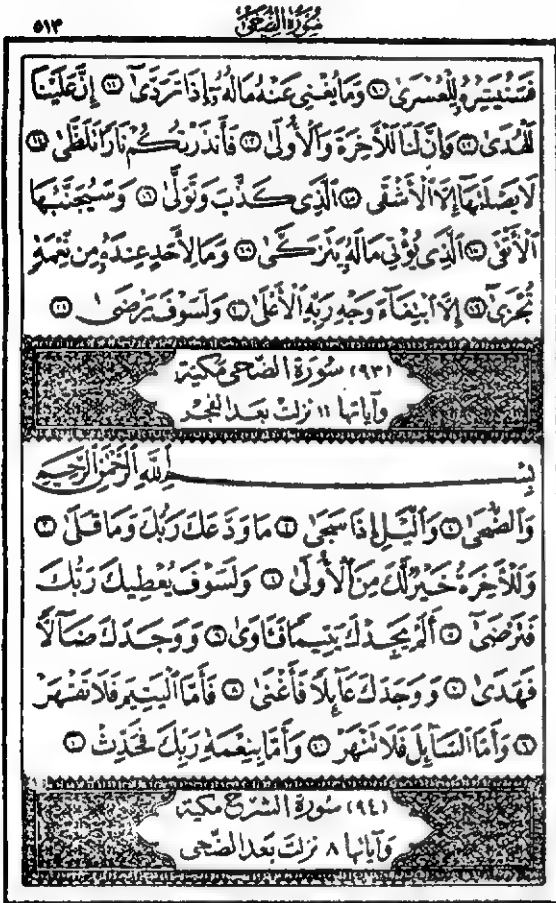 سُورَةُ الضُّحَىٰ
٥١٣
فَسَنُيَسِّرُهُ لِلْعُسْرَىٰ ۝١٠ وَمَا يُغْنِي عَنْهُ مَالُهُ إِذَا تَرَدَّىٰ ۝١١ إِنَّ عَلَيْنَا
لَلْهُدَىٰ ۝١٢ وَإِنَّ لَنَا لَلْآخِرَةَ وَالْأُولَىٰ ۝١٣ فَأَنذَرْتُكُمْ نَارًا تَلَظَّىٰ ۝١٤
لَا يَصْلَىٰهَا إِلَّا الْأَشْقَى ۝١٥ الَّذِي كَذَّبَ وَتَوَلَّىٰ ۝١٦ وَسَيُجَنَّبُهَا
الْأَتْقَى ۝١٧ الَّذِي يُؤْتِي مَالَهُ يَتَزَكَّىٰ ۝١٨ وَمَا لِأَحَدٍ عِندَهُ مِن نِّعْمَةٍ
تُجْزَىٰ ۝١٩ إِلَّا ابْتِغَاءَ وَجْهِ رَبِّهِ الْأَعْلَىٰ ۝٢٠ وَلَسَوْفَ يَرْضَىٰ ۝٢١
(٩٣) سورة الضحى مكية
وآياتها ١١ نزلت بعد الفجر
بِسْمِ اللَّهِ الرَّحْمَٰنِ الرَّحِيمِ
وَالضُّحَىٰ ۝١ وَاللَّيْلِ إِذَا سَجَىٰ ۝٢ مَا وَدَّعَكَ رَبُّكَ وَمَا قَلَىٰ ۝٣
وَلَلْآخِرَةُ خَيْرٌ لَّكَ مِنَ الْأُولَىٰ ۝٤ وَلَسَوْفَ يُعْطِيكَ رَبُّكَ
فَتَرْضَىٰ ۝٥ أَلَمْ يَجِدْكَ يَتِيمًا فَآوَىٰ ۝٦ وَوَجَدَكَ ضَآلًّا
فَهَدَىٰ ۝٧ وَوَجَدَكَ عَآئِلًا فَأَغْنَىٰ ۝٨ فَأَمَّا الْيَتِيمَ فَلَا تَقْهَرْ
۝٩ وَأَمَّا السَّآئِلَ فَلَا تَنْهَرْ ۝١٠ وَأَمَّا بِنِعْمَةِ رَبِّكَ فَحَدِّثْ ۝١١
(٩٤) سورة الشرح مكية
وآياتها ٨ نزلت بعد الضحى